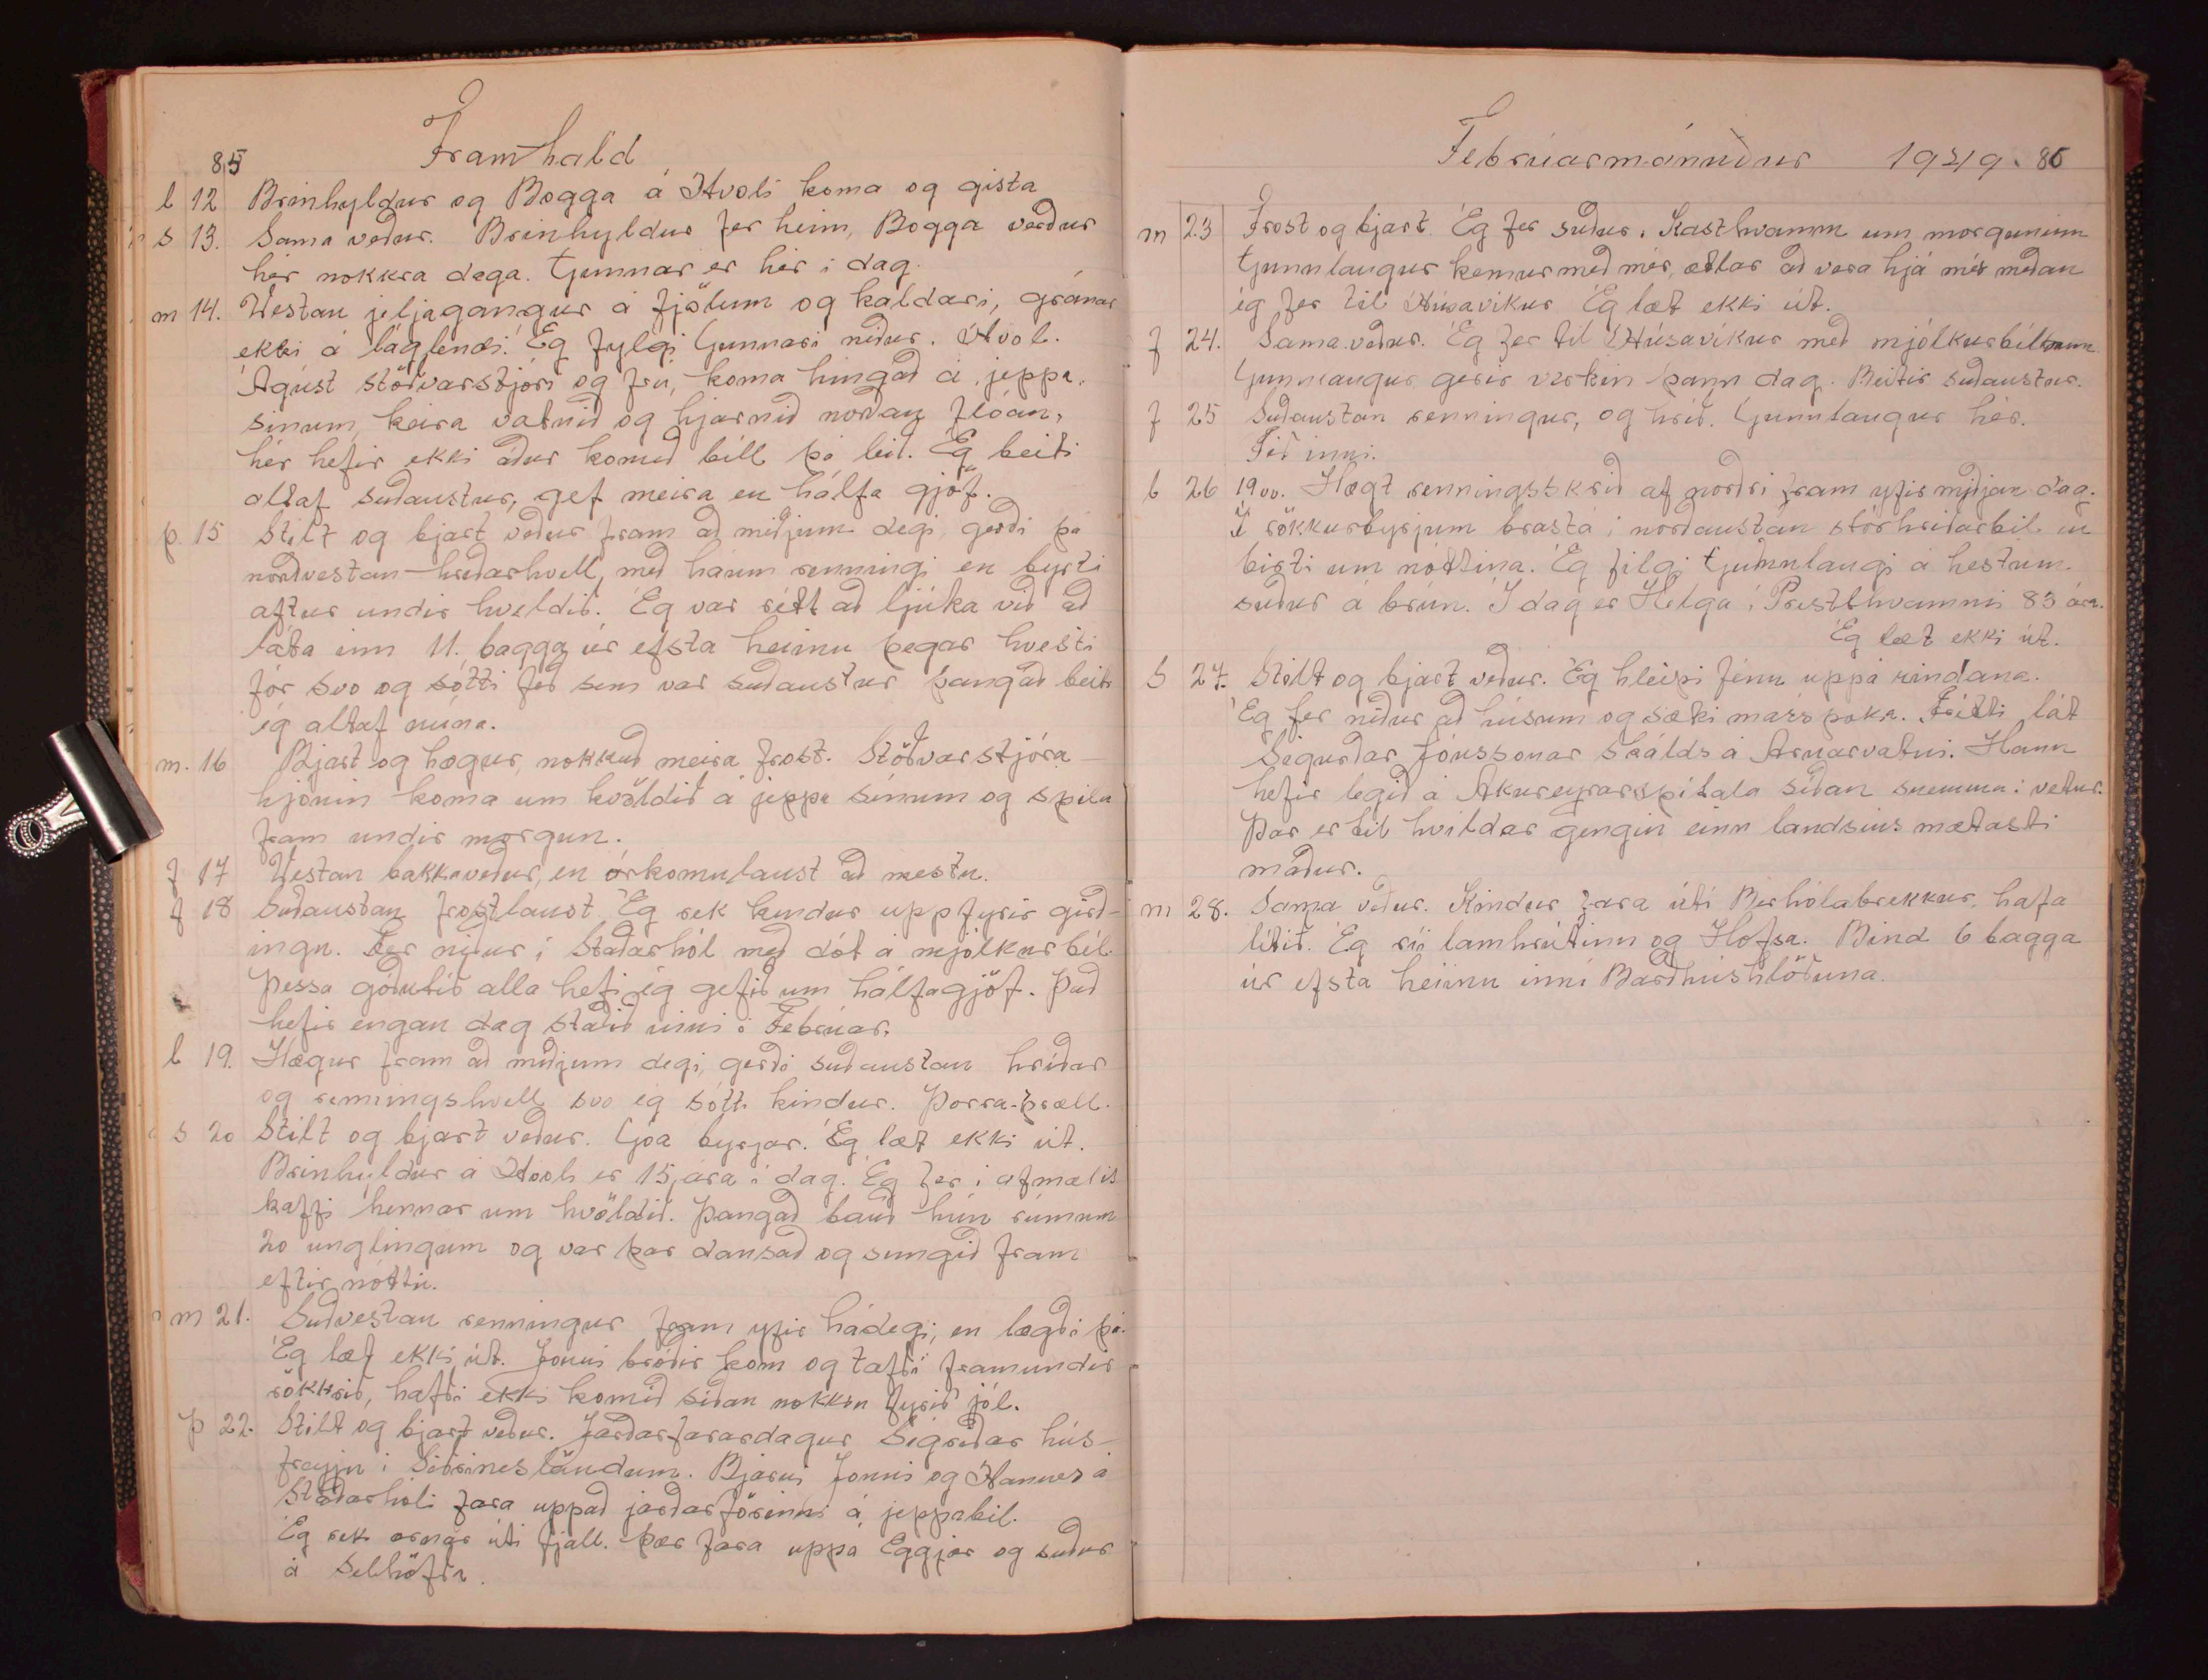 85
Framhald
l 12 Brinhyldur og Bogga á Hvoli koma og gista
s 13. Sama veður. Brinhyldur fer heim, Bogga verður
hér nokkra daga. Gunnar er hér í dag.
m 14. Westan jeljagangur á fjölum og kaldari, gránar
ekki á láglendi. Ég fylgi Gunnari niður í Hvol.
Ágúst stöðvarstjóri og frú, koma hingað á jeppa
sínum, keira vatnið og hjarnið norðan flóan,
hér hefir ekki áður komið bíll þá leið. Ég beiti
altaf suðaustur, gef meira en hálfa gjöf.
þ. 15 Stilt og bjart veður fram að miðjum degi, gerði þá
norðvestan-hriðarhvell, með háum renningi en byrti
aftur undir kveldið. Ég var rétt að ljúka við að
láta inn 11. bagga úr efsta heiinu þegar hvesti
fór svo og sótti féð sem var suðaustur þangað beiti
ég altaf núna.
m. 16 Bjart og hægur, nokkuð meira frost. Stöðvarstjóra-
hjónin koma um kvöldið á jeppa sínum og spila
fram undir morgun.
f 17 Westan bakkaveður, en órkomulaust að mestu.
f 18 Suðaustan frostlaust. Ég rek kindur upp fyrir girð-
ingu. Fer niður í Staðarhól með dót á mjólkurbíl.
Þessa góðutíð alla hefi ég gefið um hálfagjöf. Það
hefir engan dag staðið inni í Febrúar.
l 19. Hægur fram að miðjum degi, gerði suðaustan hríðar
og renningshvell svo ég sótti kindur. Þorra-þræll.
s 20 Stilt og bjart veður. Góa byrjar. Ég læt ekki út.
Brinhyldur á Hvoli er 15 ára í dag. Ég fer í afmælis
kaffi hennar um kvöldið. Þangað bauð hún rúmum
20 unglingum og var þar dansað og sungið fram
eftir nóttu.
m 21. Suðvestan renningur fram yfir hádegi, en lægði þá.
Ég læt ekki út. Jonni bróðir kom og tafði framundir
rökkrið, hafði ekki komið síðan nokkru fyrir jól.
þ 22. Stilt og bjart veður. Jarðarfarardagur Sigríðar hús-
freyju í Sidrineslöndum. Bjarni Jonni og Hannes á
Staðarhóli fara uppað jarðarförinni á jeppabíl.
Ég rek ærnar útí fjall. Þær fara uppá Eggjar og suður
á Selhöfða.
Febrúarmánuður 1949. 86
m 23 Frost og bjart. Ég fer suður í Kasthvamm um morguninn
Gunnlaugur kemur með mér, ætlar að vera hjá mér meðan
ég fer til Húsavíkur Ég læt ekki út.
f 24. Sama veður. Ég fer til Húsavíkur með mjólkurbílnum
Gunnlaugur gerir verkin þann dag. Beitir suðaustur.
f 25 Suðaustan renningur, og hríð. Gunnlaugur hér.
Féð inni.
l 26 1900. Hægt renningsskrið af norðri fram yfir miðjan dag.
Í rökkurbyrjum brasta í norðaustan stórhríðarbil en
birti um nóttina. Ég filgi Gunnlaugi á hestum
suður á brún. Í dag er Helga í Presthvammi 83 ára.
Ég læt ekki út.
S 27. Stilt og bjart veður. Ég hleipi fénu uppá rindana.
Ég fer niður að húsum og sæki maíspoka. Frétti lát
Sigurðar Jónssonar skálds á Arnarvatni. Hann
hefir legið á Akureyrarspítala síðan snemma í vetur.
Þar er til hvildar gengin einn landsins mætasti
maður.
m 28. Sama veður. Kindur fara útí Berhólabrekkur, hafa
lítið. Ég ríi lambhrútinn og Hofsa. Bind 6 bagga
úr efsta heiinu inní Barðhúshlöðuna.